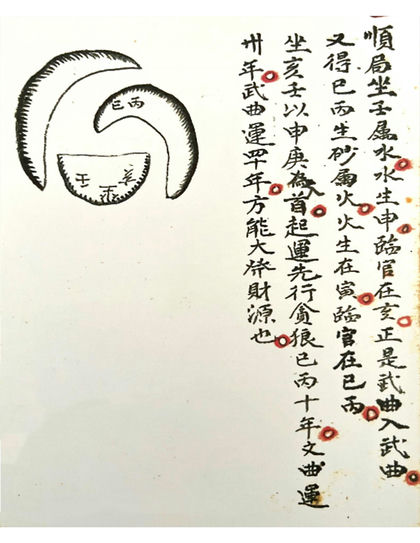 順局坐壬屬水水生申臨官在亥正是武曲入武曲
又得巳丙生砂屬火火生在寅臨官在巳丙
坐亥壬以申庚為首起運先行貪狼巳丙十年文曲運
卅年武曲運四十年方能大發財源也
巳丙
亥
壬